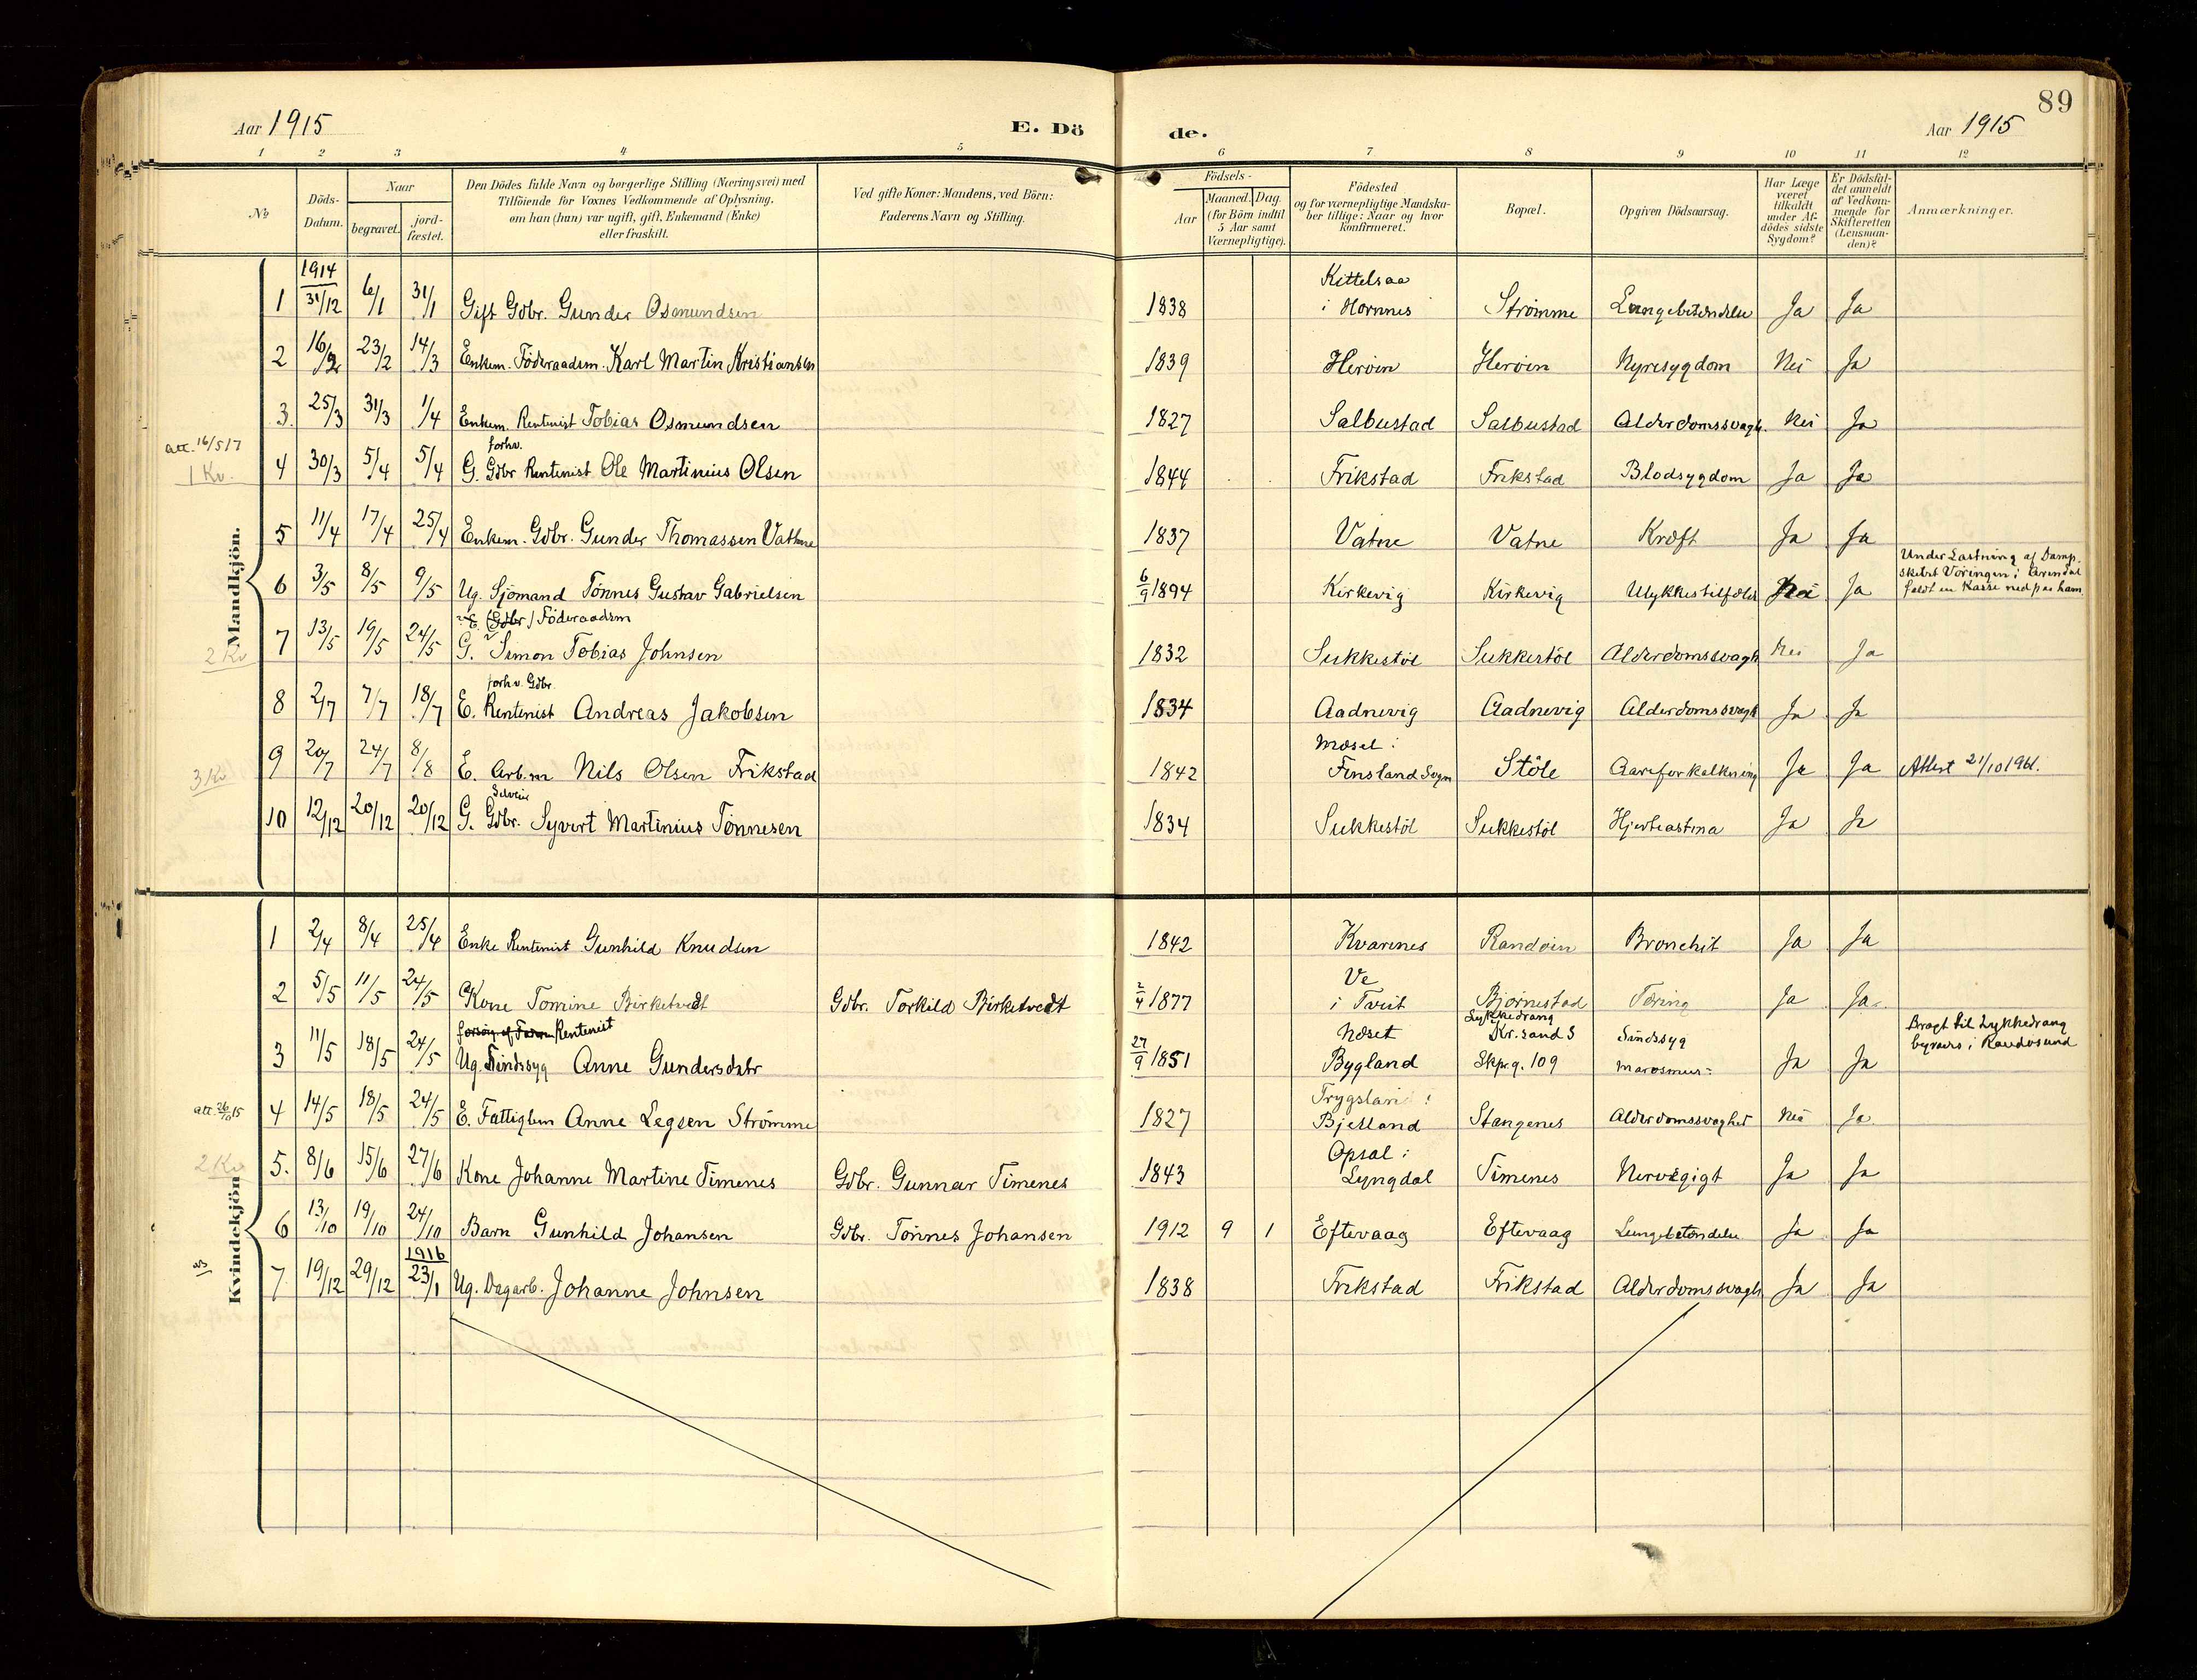 89
Aar 1915 E. Dö de. Aar 1915
1 2 3 4 5 6 7 8 9 10 11 12
No
Döds-Datum.
Naar
begravet.
jord-fæstet.
Den Dödes fulde Navn og borgerlige Stilling (Næringsvei) med
Tilföiende for Voxnes Vedkommende af Oplysning,
om han (hun) var ugift, gift, Enkemand (Enke)
eller fraskilt.
Ved gifte Koner: Mandens, ved Börn:
Faderens Navn og Stilling.
Födsels-
Aar
Maaned. Dag.
(for Börn indtil
5 Aar samt
Værnepligtige).
Födested
og for værnepligtige Mandska-
ber tillige: Naar og hvor
konfirmeret.
Bopæl.
Opgiven Dödsaarsag.
Har Læge
været
tilkaldt
under Af-
dödes sidste
Sygdom?
Er Dödsfal-
det anmeldt
af Vedkom-
mende for
Skifteretten
(Lensman-
den)?
Anmærkninger.
Mandkjön.
1914
1 31/12 6/1 31/1 Gift Gdbr. Gunder Osmundsen 1838 Kittelsaa i Hornnes Strömme Lungebetændelse Ja Ja
2 16/2 23/2 14/3 Enkem. Föderaadsm. Karl Martin Kristiansen 1839 Heröen Heröen Nyresygdom Nei Ja
3. 25/3 31/3 1/4 Enkem. Rentenist Tobias Osmundsen 1827 Salbustad Salbustad Alderdomssvagh. Nei Ja
att. 16/5 17
1 Kv.
forhv.
4 30/3 5/4 5/4 G. Gdbr Rentenist Ole Martinius Olsen 1844 Frikstad Frikstad Blodsygdom Ja Ja
5 11/4 17/4 25/4 Enkem. Gdbr. Gunder Thomassen Vatne 1837 Vatne Vatne Kræft Ja Ja
6 3/5 8/5 9/5 Ug. Sjömand Tönnes Gustav Gabrielsen 6/9 1894 Kirkevig Kirkevig Ulykkestilfælde Nei Ja Under Lastning af Damp-
skibet Vöringen i Arendal
faldt en Kasse ned paa ham.
2 Kv
(Gdbr) Föderaadsm
7 13/5 19/5 24/5 G. Simon Tobias Johnsen 1832 Sukkestöl Sukkestöl Alderdomssvagh Nei Ja
forhv. Gdbr.
8 2/7 7/7 18/7 E. Rentenist Andreas Jakobsen 1834 Aadnevig Aadnevig Alderdomssvagh Ja Ja
3 Kv
9 20/7 24/7 8/8 E. Arb.m Nils Olsen Frikstad 1842 Mosel i Finsland Sogn Stöle Aareforkalkning Ja Ja Attest 21/10 1961.
Selveier
10 12/12 20/12 20/12 G. Gdbr. Syvert Martinius Tönnesen 1834 Sukkestöl Sukkestöl Hjerteastma Ja Ja
Kvindekjön
1 2/4 8/4 25/4 Enke Rentenist Gunhild Knudsen 1842 Kvarenes Randöen Bronchit Ja Ja
2 5/5 11/5 24/5 Kone Tomine Birketvedt Gdbr. Torkild Birketvedt 2/4 1877 Ve i Tveit Björnestad Tæring Ja Ja
Rentenist
3 11/5 18/5 24/5 Ug. Sindssyg Anne Gundersdatr 27/9 1851 Næset Bygland Lykkedrang Kr.sand S Skpr.g. 109 Sindssyg marasmus Ja Ja Bragt til Lykkedrang
byraas i Randosund
att. 26/10 15
4 14/5 18/5 24/5 E. Fattiglem Anne Legsen Strömme 1827 Trygsland i Bjelland Stangenes Alderdomssvaghet Nei Ja
2 Kv
5. 8/6 15/6 27/6 Kone Johanne Martine Timenes Gdbr. Gunnar Timenes 1843 Opsal i Lyngdal Timenes Nervegigt Ja Ja
6 13/10 19/10 24/10 Barn Gunhild Johansen Gdbr. Tönnes Johansen 1912 9 1 Eftevaag Eftevaag Lungebetændelse Ja Ja
1916
7 19/12 29/12 23/1 Ug. Dagarb. Johanne Johnsen 1838 Frikstad Frikstad Alderdomssvagh Ja Ja